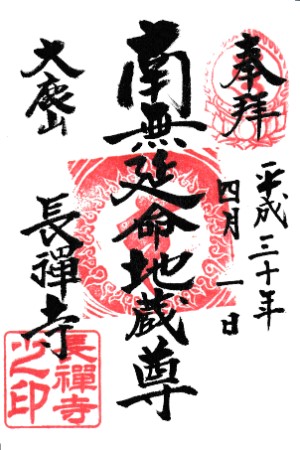 奉拝
平成三十年
四月一日
南無延命地蔵尊
大鹿山
長禪寺
長禪寺之印